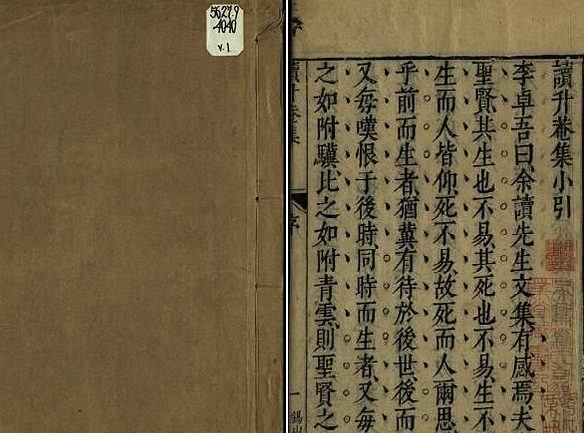 5627.9
4040
v.1
讀升菴集小引
李卓吾曰余讀先生文集有感焉夫
聖賢其生也不易其死也不易生不
生而人皆仰死不易故死而人爾思
乎前而生者猶冀有待於後世後而
又每嘆恨于後時同時而生者又每
之如附驥比之如附青雲則聖賢之
讀升菴集
序
一